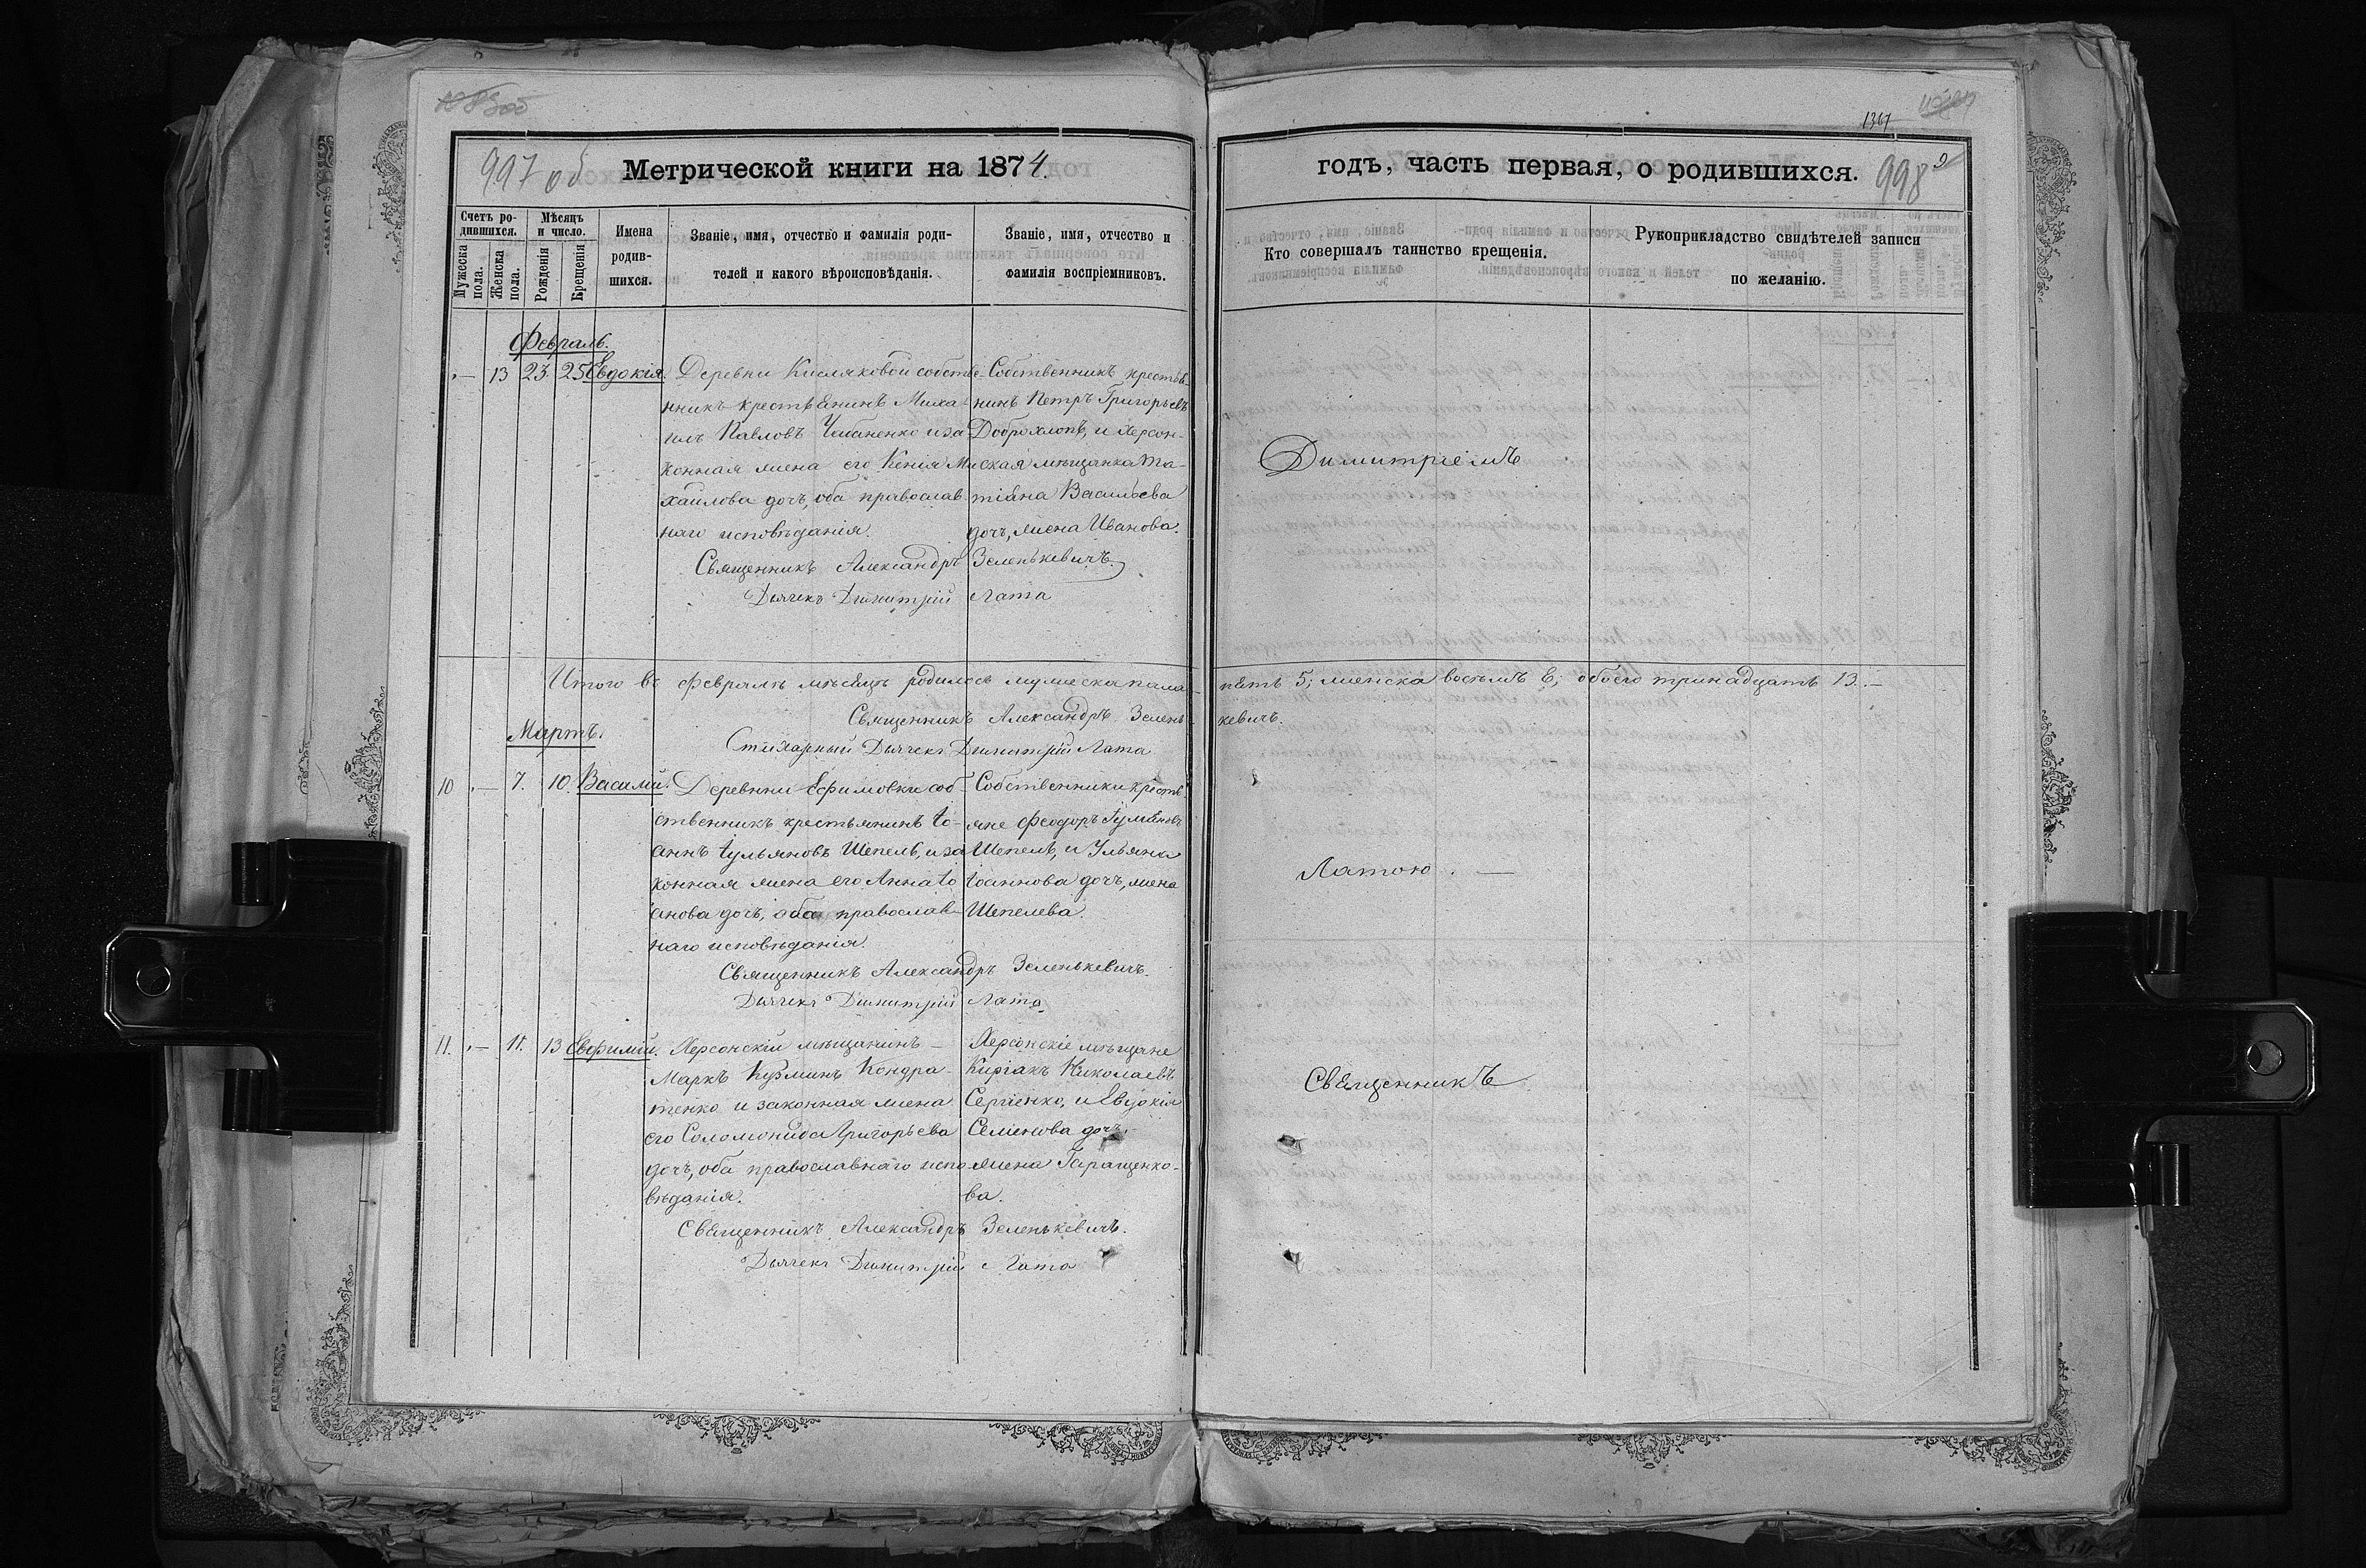 1367
997 об
Метрической книги на 1874.
годъ, часть первая, о родившихся.
998
Счетъ ро-
дившихся.
Мужеска пола.
Женска пола.
Мѣсяцъ
и число.
Рожденія
Крещенія
Имена
родив-
шихся.
Званіе, имя, отчество и фамилія роди-
телей и какого вѣроисповѣданія.
Званіе, имя, отчество и
фамилія воспріемниковъ.
Кто совершалъ таинство крещенія.
Рукоприкладство свидѣтелей записи
по желанію.
Февраль.
— 13 23. 25 Евдокія.
Деревни Кисляковой собстве-
нникъ крестьянинъ Миха-
илъ Павловъ Чабаненко и за
конная жена его Ксенія Ми
хайлова дочъ, оба православ
наго исповѣданія.
Собственникъ крестья-
нинъ Петръ Григорьевъ
Доброхлопъ, и Херсон-
ская мѣщанка Та-
тіана Васильева
дочъ, жена Иванова.
Священникъ Александръ Зеленькевичъ.
Дьячекъ Димитрій Лата
Димитріемъ
Итого въ Февралѣ мѣсяцѣ родилось мужеска пола пять 5; женска восемь 8; обоего тринадцать 13. —
Священникъ Александръ Зелень-
кевичъ.
Стихарный Дьячекъ Димитрій Лата
Мартъ.
10 — 7. 10. Василій.
Деревни Ефимовки соб-
ственникъ крестьянинъ Іо-
аннъ Іульяновъ Шепель, и за
конная жена его Анна Іо
анова дочъ, оба православ-
наго исповѣданія.
Собственники кресть-
яне Феодоръ
Шепель, и Ульяна
Іоаннова дочъ, жена
Шепелева.
Священникъ Александръ Зеленькевичъ.
Дьячекъ Димитрій Лата
Латою. —
11. — 11. 13 Евфимій.
Херсонскій мѣщанинъ —
Маркъ Кузминъ Кондра-
тенко и законная жена
его Соломонида Григорьева
дочъ, оба православнаго испо-
вѣданія.
Херсонскіе мѣщане
Киріакъ Николаевъ
Сергіенко, и Евдокія
Семенова дочъ,
жена Гаращенко-
ва.
Священникъ Александръ Зеленькевичъ.
Дьячекъ Димитрій Лата
Священникъ